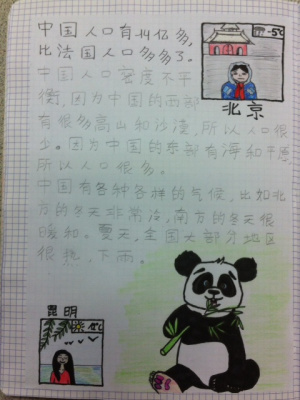 中国人口有14亿多,
比法国人口多多了。
中国人口密度不平
衡,因为中国的西部
有很多高山和沙漠,所以人口很
少。因为中国的东部有海和平原,
所以人口很多。
中国有各种各样的气候,比如北
方的冬天非常冷,南方的冬天很
暖和。夏天,全国大部分地区
很热,下雨。
-5℃
北京
昆明